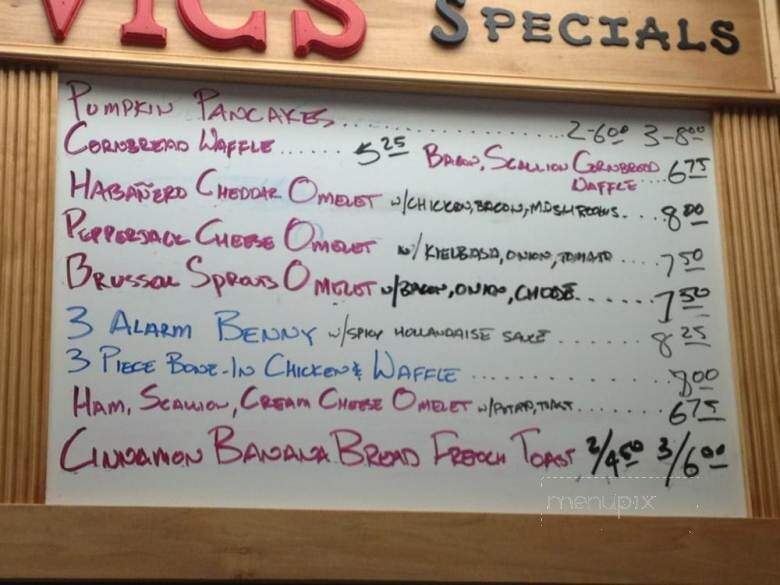 VIC'S SPECIALS
PUMPKIN PANCAKES.................2-6.00 3-8.00
CORNBREAD WAFFLE......5.25 BACON, SCALLION CORNBREAD
WAFFLE...6.75
HABAÑERO CHEDDAR OMELET w/CHICKEN, BACON, MUSHROOMS...8.00
PEPPERJACK CHEESE OMELET w/KIELBASA, ONION, TOMATO.....7.50
BRUSSEL SPROUTS OMELET w/BACON, ONION, CHEESE......7.50
3 ALARM BENNY w/SPICY HOLLANDAISE SAUCE......8.25
3 PIECE BONE-IN CHICKEN & WAFFLE............8.00
HAM, SCALLION, CREAM CHEESE OMELET w/POTATO, TOAST.....6.75
CINNAMON BANANA BREAD FRENCH TOAST 2/4.50 3/6.00
menupix